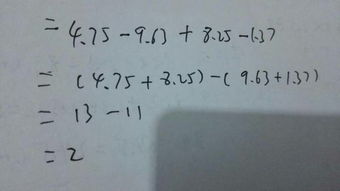 = 4.75 - 9.63 + 8.25 - 1.37
= (4.75 + 8.25) - ( 9.63 + 1.37)
= 13 - 11
= 2